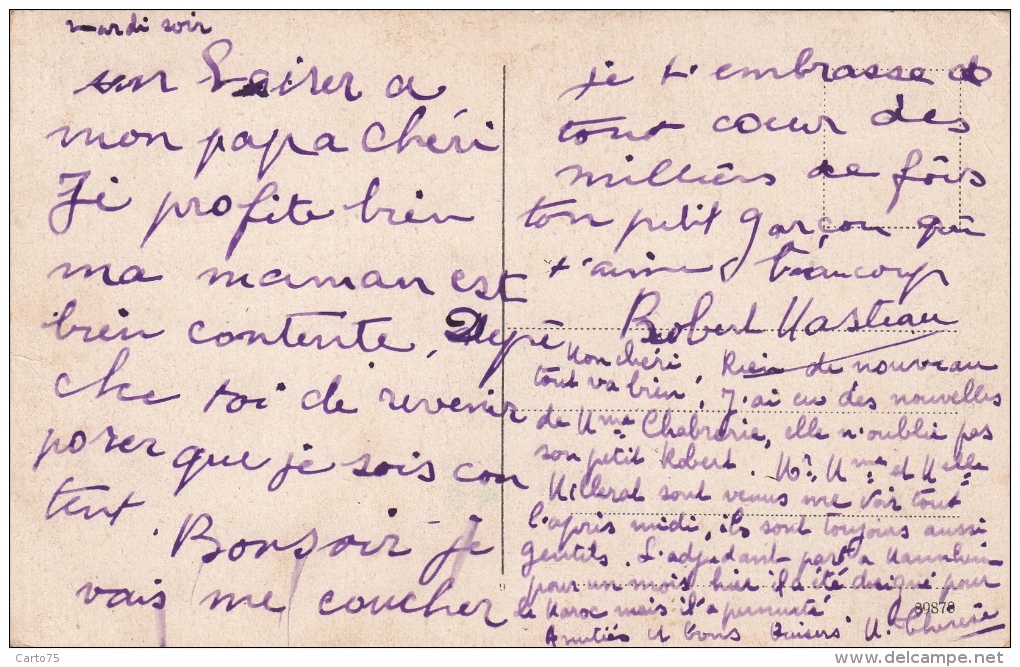 mardi soir
un Baiser a
mon papa chéri
Je profite bien
ma maman est
bien contente, Depé
che toi de revenir
poser que je sois con
tent.
Bonsoir je
vais me coucher
je t'embrasse de
tout cœur des
milliérs de fois
ton petit garçon qui
t'aime beaucoup
Robert Hasteau
Mon chéri, Rien de nouveau
tout va bien, J'ai eu des nouvelles
de Mme Chabrerie, elle n'oublie pas
son petit Robert. Mr, Mme et Melle
Milleral sont venus me voir tout
l'après midi, ils sont toujours aussi
gentils. L'adjudant part a Mannheim
pour un mois, hier il a été désigné pour
le Maroc mais il a permuté
Amitiés et bons Baisers M. Therese
89878
Carto75
delcampe.net